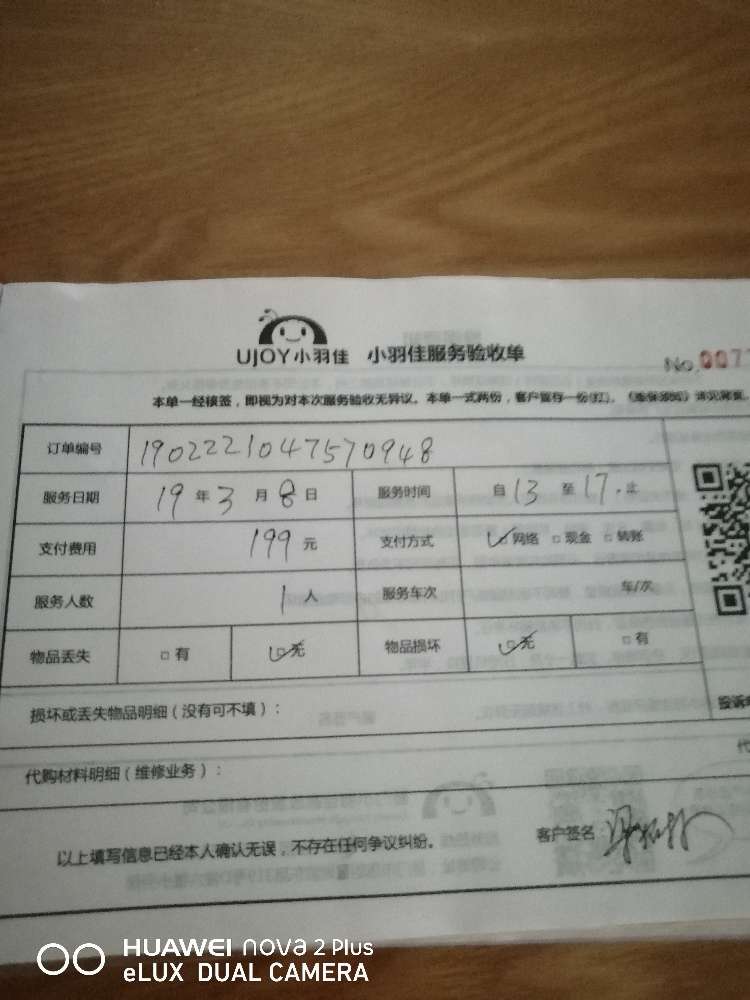 UJOY小羽佳 小羽佳服务验收单
No.0077
本单一经核签，即视为对本次服务验收无异议。本单一式两份，客户留存一份(红)。
订单编号 190222104757094​8
服务日期 19年3月8日 服务时间 自13至17.止
支付费用 199元 支付方式 ☑网络 □现金 □转账
服务人数 1人 服务车次 车/次
物品丢失 □有 ☑无 物品损坏 ☑无 □有
损坏或丢失物品明细（没有可不填）：
投诉
代购材料明细（维修业务）：
代
以上填写信息已经本人确认无误，不存在任何争议纠纷。 客户签名：
HUAWEI nova 2 Plus
eLUX DUAL CAMERA